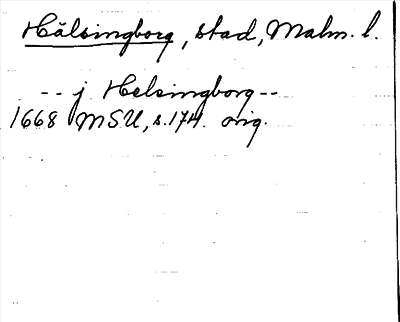 Hälsingborg, stad, Malm. l.
-- j Helsingborg --
1668 MSU, s. 174. orig.